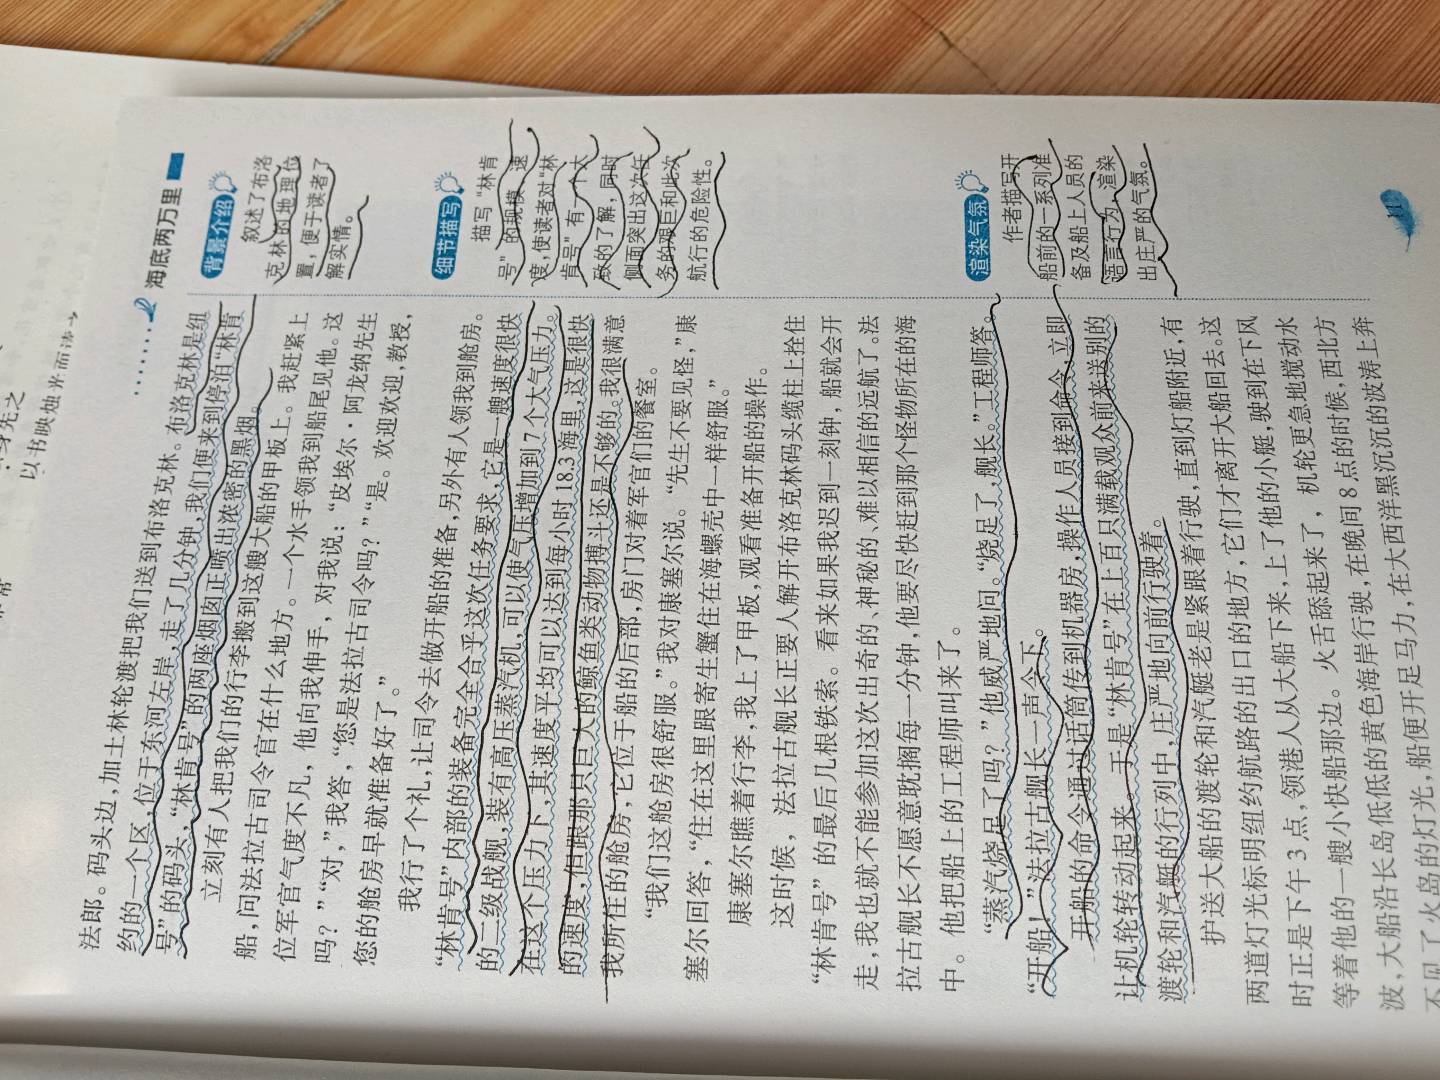 海底两万里
法郎。码头边,加土林轮渡把我们送到布洛克林。布洛克林是纽
约的一个区,位于东河左岸,走了几分钟,我们便来到停泊“林肯
号”的码头,“林肯号”的两座烟囱正喷出浓密的黑烟。
立刻有人把我们的行李搬到这艘大船的甲板上。我赶紧上
船,问法拉古司令官在什么地方。一个水手领我到船尾见他。这
位军官气度不凡,他向我伸手,对我说:“皮埃尔·阿龙纳先生
吗?”“对,”我答,“您是法拉古司令吗?”“是。欢迎欢迎,教授,
您的舱房早就准备好了。”
我行了个礼,让司令去做开船的准备,另外有人领我到舱房。
“林肯号”内部的装备完全合乎这次任务要求,它是一艘速度很快
的二级战舰,装有高压蒸汽机,可以使气压增加到7个大气压力。
在这个压力下,其速度平均可以达到每小时18.3海里,这是很快
的速度,但跟那只巨大的鲸鱼类动物搏斗还是不够的。我很满意
我所住的舱房,它位于船的后部,房门对着军官们的餐室。
“我们这舱房很舒服。”我对康塞尔说。“先生不要见怪,”康
塞尔回答,“住在这里跟寄生蟹住在海螺壳中一样舒服。”
康塞尔瞧着行李,我上了甲板,观看准备开船的操作。
这时候，法拉古舰长正要人解开布洛克林码头缆柱上拴住
“林肯号”的最后几根铁索。看来如果我迟到一刻钟，船就会开
走,我也就不能参加这次出奇的、神秘的、难以相信的远航了。法
拉古舰长不愿意耽搁每一分钟,他要尽快赶到那个怪物所在的海
中。他把船上的工程师叫来了。
“蒸汽烧足了吗?”他威严地问。“烧足了,舰长。”工程师答。
“开船!”法拉古舰长一声令下。
开船的命令通过话筒传到机器房,操作人员接到命令,立即
让机轮转动起来。于是“林肯号”在上百只满载观众前来送别的
渡轮和汽艇的行列中,庄严地向前行驶着。
护送大船的渡轮和汽艇老是紧跟着行驶,直到灯船附近,有
两道灯光标明纽约航路的出口的地方,它们才离开大船回去。这
时正是下午3点,领港人从大船下来,上了他的小艇,驶到在下风
等着他的一艘小快船那边。火舌舔起来了，机轮更急地搅动水
波,大船沿长岛低低的黄色海岸行驶,在晚间8点的时候,西北方
不见了火岛的灯光,船便开足马力,在大西洋黑沉沉的波涛上奔
背景介绍
叙述了布洛
克林的地理位
置,便于读者了
解实情。
细节描写
描写“林肯
号”的规模、速
度,使读者对“林
肯号”有一个大
致的了解,同时
侧面突出这次任
务的艰巨和此次
航行的危险性。
渲染气氛
作者描写开
船前的一系列准
备及船上人员的
语言行为,渲染
出庄严的气氛。
11